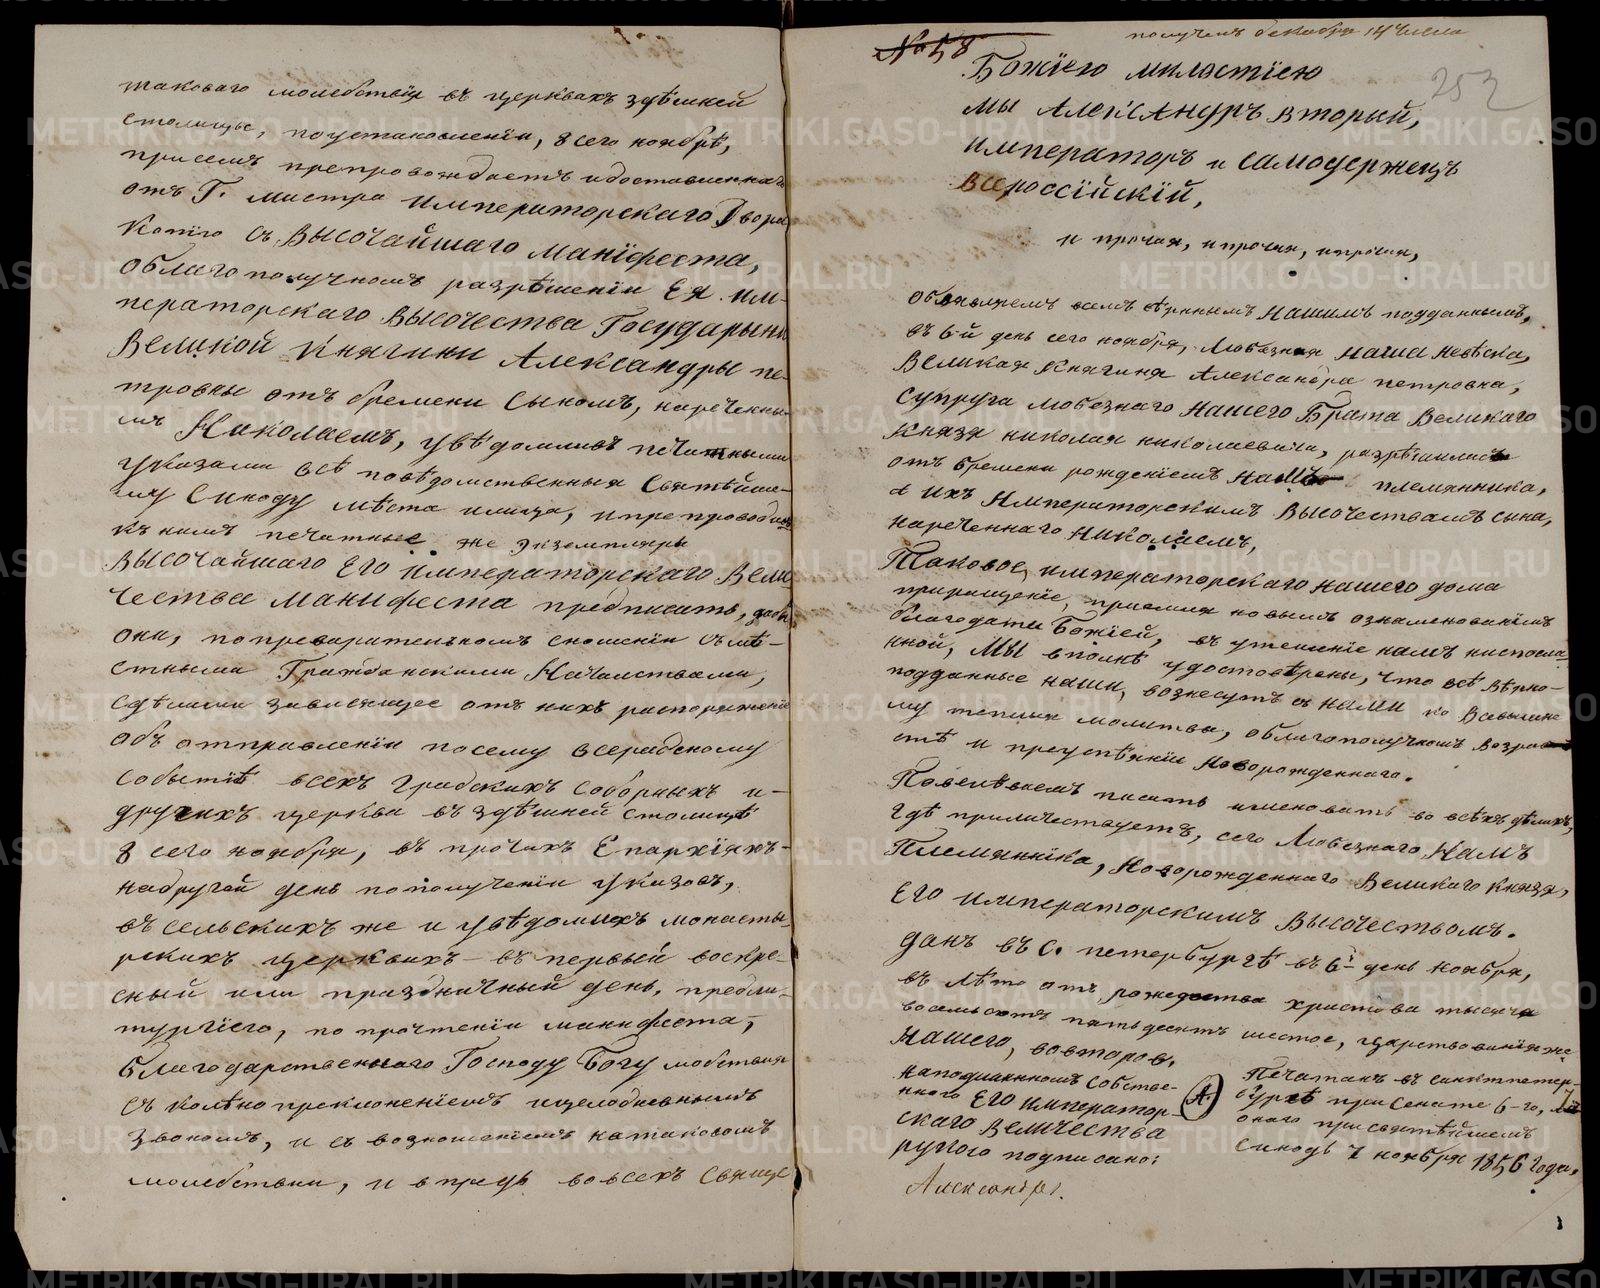 таковаго молебствія въ церквахъ здѣшней
столицы, поустановленіи, 8 сего ноября,
присемъ препровождаетъ идоставленная
отъ Г. Мистра Императорскаго Двора
Копію съ Высочайшаго Маніфеста,
облагополучномъ разрѣшеніи Ея Им-
ператорскаго Высочества Государыни
Великой Княгини Александры Пе-
тровны отъ бремени Сыномъ, наречены-
мъ Николаемъ, увѣдомивъ печатными
указами всѣ подвѣдомственныя Святѣйше-
му Синоду мѣста илица, ипрепроводивъ
къ нимъ печатные же экземпляры
Высочайшаго Его Императорскаго Вели
чества Манифеста предписать, дабы
они, попреварительномъ сношеніи съ мѣ-
стными Гражданскими Началствами,
сдѣлали зависящее отъ нихъ распоряженіе
объ отправленіи посему всерадсному
событіѣ всехъ градскихъ Соборныхъ и-
другихъ церкви въ здѣшней столицѣ
8 сего ноября, въ прочихъ Епархіяхъ-
надругой день пополученіи указовъ,
въ сельскихъ же и увѣдомихъ монасты-
рскихъ церквихъ - въ первый воскре-
сный или праздничный день, предли-
тургіею, по прочтеніи манифеста,
благодарственнаго Господу Богу мобствия
съ колѣнопреклоненіемъ ицелодневнымъ
звономъ, и съ возношеніемъ натаковомъ
молебствии, и впредь вовсехъ Свяще
получено декабря 14 числа
№ 58
253
Божіею милостіею
мы Александръ вторый,
императоръ и самодержецъ
всероссійскій,
и прочая, и прочая, и прочая,
объявляемъ всемъ вѣрнымъ Нашимъ подданнымъ,
въ 6-й день сего ноября, Любезная наша невѣска,
Великая Княгиня Александра петровна,
супруга любезнаго нашего Брата Великаго
князя николая николаевича, разрѣшилась
отъ бремени рожденіемъ Намъ племянника,
а ихъ Императорскимъ Высочествамъ сына,
нареченнаго николаемъ,
Таковое, императорскаго нашего дома
приращеніе, приемля новымъ ознаменованіемъ
благодати Божіей, въ утешеніе намъ ниспосла-
нной, Мы вполнѣ удостовѣрены, что всѣ вѣрно-
подданные наши, вознесутъ съ нами ко всевышне
му теплыя молитвы, облагополучномъ возра
стѣ и преуспѣяніи новорожденнаго.
Повелѣваемъ писать именовать во всѣхъ дѣлахъ,
гдѣ приличествуетъ, сего Любезнаго намъ
Племянніка, новорожденнаго Великаго князя,
Его императорскимъ Высочествомъ.
данъ въ с. петербургѣ въ 6й день ноября,
въ лѣто отъ рождества христова тысяча
восемьсотъ пятьдесятъ шестое, царствованія же
нашего, вовторое.
наподлинномъ собстве-
ннаго Его император-
скаго Величества
рукою подписано:
Александръ.
А.
Печатанъ въ санктпетер-
бургѣ при Сенате 6-го,
онаго при святѣйшемъ
синодѣ 7 ноября 1856 года.
METRIKI.GASO-URAL.RU